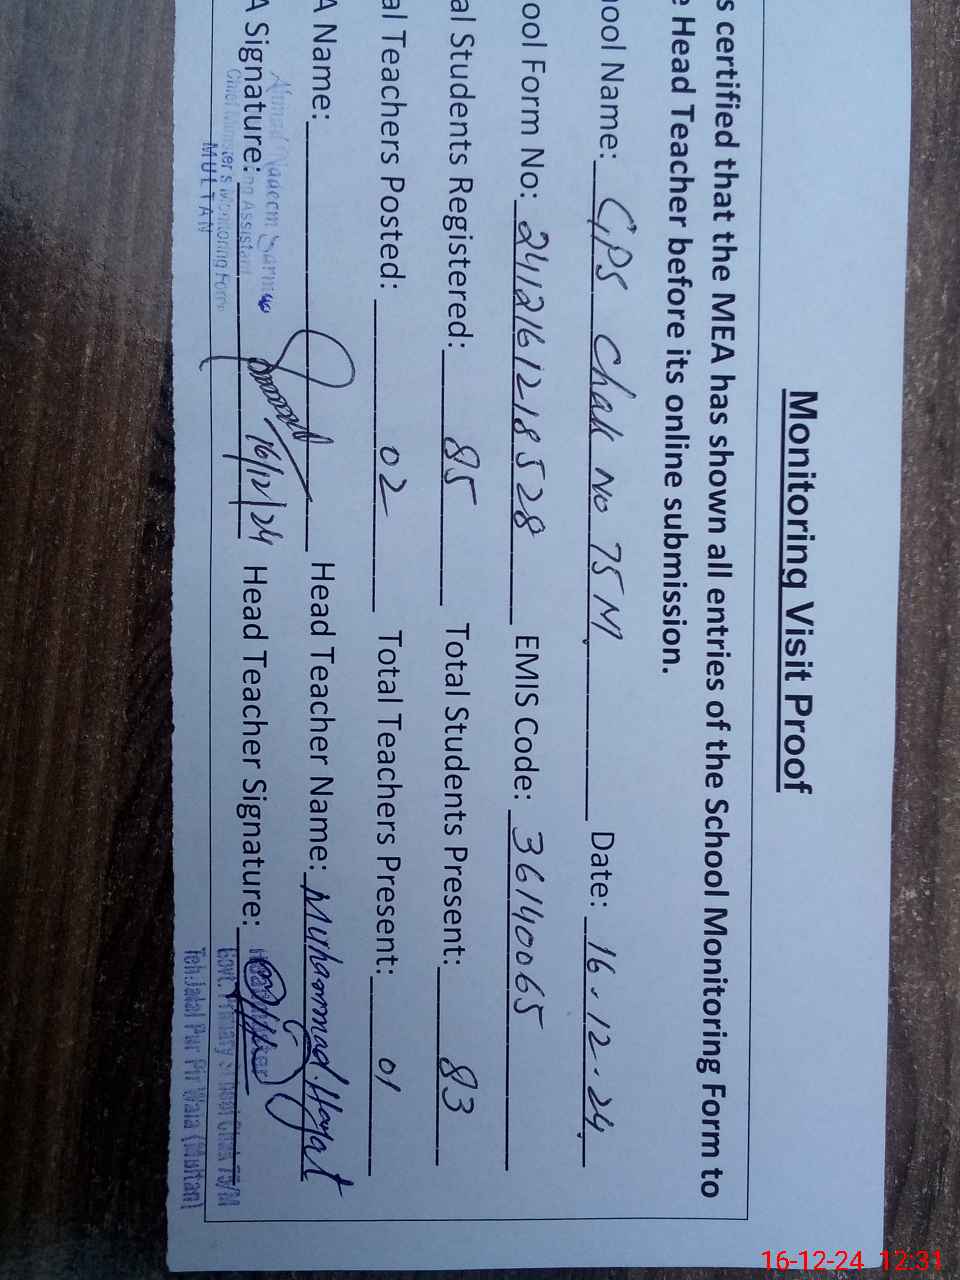 Monitoring Visit Proof
s certified that the MEA has shown all entries of the School Monitoring Form to
e Head Teacher before its online submission.
ool Name: GPS Chak No 75 M Date: 16.12.24
ool Form No: 241216121 8528 EMIS Code: 36140065
al Students Registered: 85 Total Students Present: 83
al Teachers Posted: 02 Total Teachers Present: 01
A Name: Head Teacher Name: Muhammad Hayat
A Signature: 16/12/24 Head Teacher Signature:
Ahmad Nadeem
ng Assistant
Chief Minister's Monitoring Force
MULTAN
Govt. Primary School Chak 75/M
Teh.Jalal Pur Pir Wala (Multan)
16-12-24 12:31